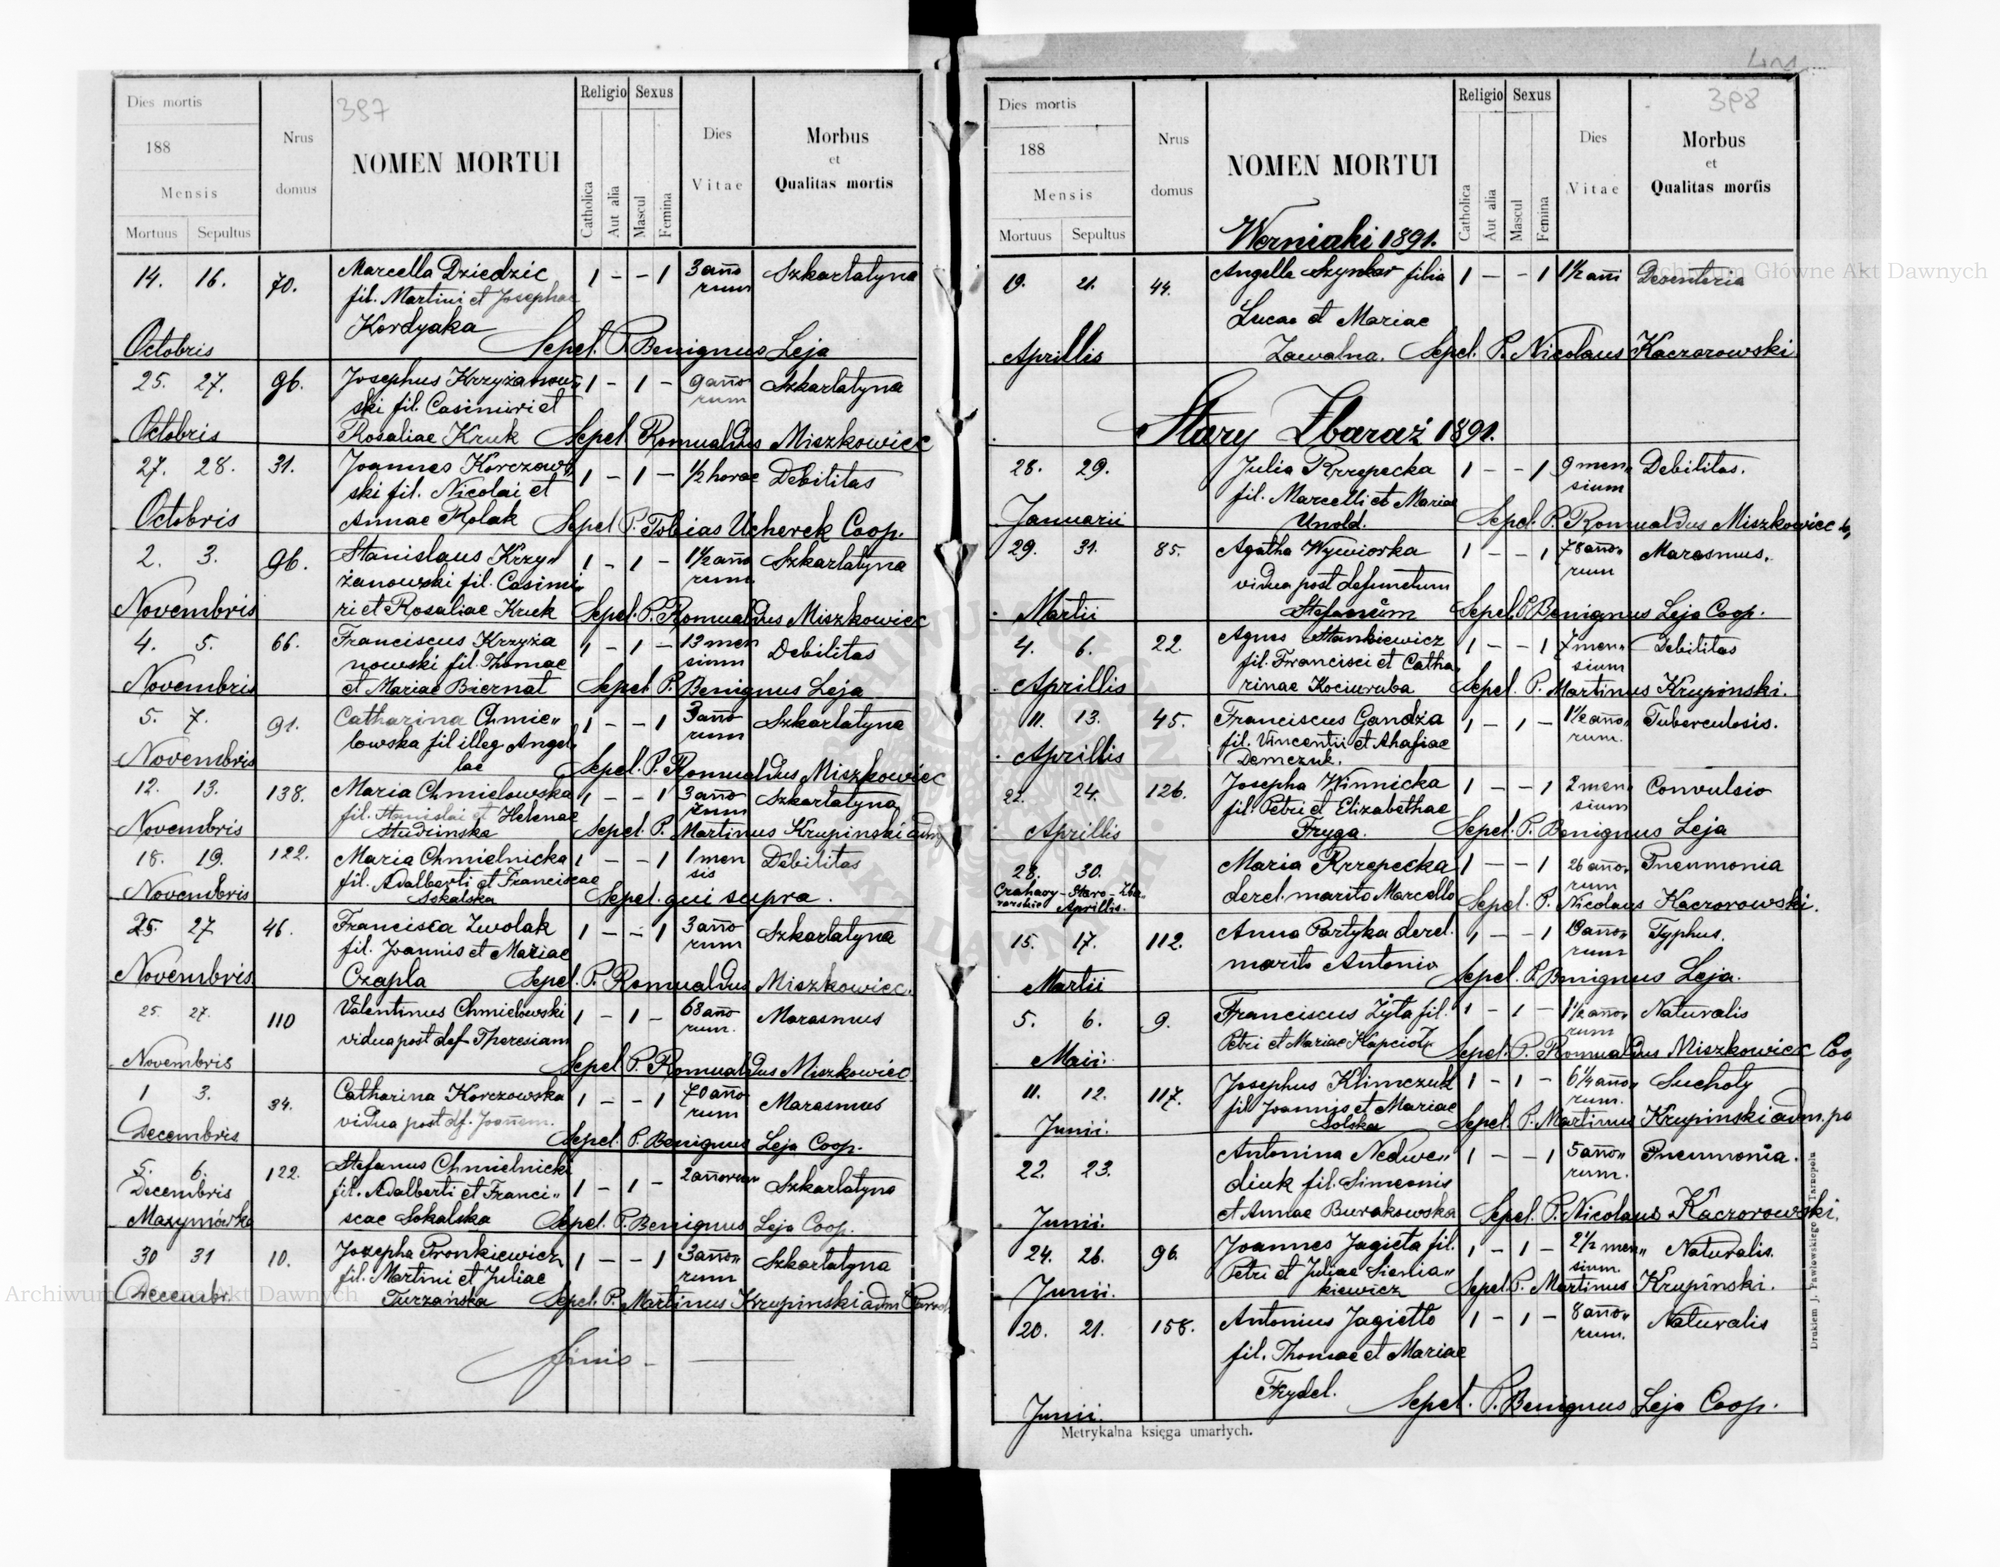 387
Dies mortis
188
Mensis
Mortuus Sepultus
Nrus domus
NOMEN MORTUI
Religio Sexus
Catholica Aut alia Mascul Femina
Dies Vitae
Morbus et Qualitas mortis
14. 16. 70. Marcella Dziedzic 1 – – 1 3 año Szkarlatyna
fil. Martini et Josephae rum
Kordyaka
Octobris Sepel. P. Benignus Leja
25. 27. 96. Josephus Krzyżanow 1 – 1 – 9 año Szkarlatyna
ski fil. Casimiri et rum
Octobris Rosaliae Kruk Sepel Romualdus Miszkowiec
27. 28. 31. Joannes Korczow 1 – 1 – 1/2 horae Debilitas
ski fil. Nicolai et
Octobris Annae Rolak Sepel P. Tobias Ucherek Coop.
2. 3. 96. Stanislaus Krzy„ 1 – 1 – 1 1/2 año Szkarlatyna
żanowski fil. Casimi rum
Novembris ri et Rosaliae Kruk Sepel. P. Romualdus Miszkowiec
4. 5. 66. Franciscus Krzyża 1 – 1 – 13 men Debilitas
nowski fil. Thomae sium
Novembris et Mariae Biernat Sepel P. Benignus Leja
5. 7. 91. Catharina Chmie„ 1 – – 1 3 año Szkarlatyna
lowska fil illeg Angel rum
lae
Novembris Sepel. P. Romualdus Miszkowiec
12. 13. 138. Maria Chmielowska 1 – – 1 3 año Szkarlatyna
fil. Stanislai et Helenae rum
Novembris Studzinska Sepel. P. Martinus Krupinski adm
18. 19. 122. Maria Chmielnicka 1 – – 1 1 men Debilitas
fil. Adalberti et Franciscae sis
Novembris Sokalska Sepel. qui supra.
25. 27 46. Francisca Zwolak 1 – – 1 3 año Szkarlatyna
fil. Joannis et Mariae rum
Novembris Czapla Sepel. P. Romualdus Miszkowiec.
25. 27. 110 Valentinus Chmielowski 1 – 1 – 68 año Marasmus
viduapost def Theresiam rum.
Novembris Sepel P. Romualdus Miszkowiec
1 3. 34. Catharina Korczowska 1 – – 1 70 año Marasmus
vidua post df. Joañem. rum
Decembris Sepel. P. Benignus Leja Coop.
5. 6. 122. Stefanus Chmielnicki 1 – 1 – 2 añorum Szkarlatyna
Decembris fil. Adalberti et Franci„
Mazymówka scae Sokalska Sepel. P. Benignus Leja Coop.
30 31 10. Jozepha Pronkiewicz 1 – – 1 3 año„ Szkarlatyna
fil. Martini et Juliae rum
Decembr. Turzańska Sepel. P. Martinus Krupinski adm
finis
398
Dies mortis
188
Mensis
Mortuus Sepultus
Nrus domus
NOMEN MORTUI
Werniaki 1891.
Religio Sexus
Catholica Aut alia Mascul Femina
Dies Vitae
Morbus et Qualitas mortis
19. 21. 44. Angella Szynkar filia 1 – – 1 1 1/2 añi Desenteria
Lucae et Mariae
Aprillis Zawalna. Sepel. P. Nicolaus Kaczorowski
Stary Zbaraż 1891.
28. 29. Julia Rzepecka 1 – – 1 9 men„ Debilitas.
fil. Marcelli et Mariae sium
Januarii Unold. Sepel. P. Romualdus Miszkowiec
29. 31. 85. Agatha Wywiorka 1 – – 1 78 año„ Marasmus.
vidua post defunctum rum
Martii Stefanum Sepel. P. Benignus Leja Coop.
4. 6. 22. Agnes Stankiewicz 1 – – 1 7 men„ Debilitas
fil. Francisci et Catha sium
Aprillis rinae Kociuruba Sepel. P. Martinus Krupinski.
11. 13. 45. Franciscus Gandza 1 – 1 – 1 1/2 año„ Tuberculosis.
fil. Vincentii et Ahafiae rum.
Aprillis Demczuk.
22. 24. 126. Josepha Winnicka 1 – – 1 2 men„ Convulsio
fil. Petri et Elizabethae sium
Aprillis Fryga. Sepel. P. Benignus Leja
28. 30. Maria Rzepecka 1 – – 1 26 año„ Pneumonia
derel. marito Marcello rum
Aprillis. Sepel. P. Nicolaus Kaczorowski.
15. 17. 112. Anna Partyka derel. 1 – – 1 año„ Typhus.
marito Antonio rum
Martii Sepel. P. Benignus Leja.
5. 6. 9. Franciscus Zyta fil. 1 – 1 – 1 1/2 año„ Naturalis
Petri et Mariae rum
Maii. Sepel. P. Romualdus Miszkowiec Coo
11. 12. 117. Josephus Klimczuk 1 – 1 – 6 1/4 año„ Suchoty
fil Joannis et Mariae rum.
Junii. Solska Sepel. P. Martinus Krupinski adm. pa
22. 23. Antonina Nedwe„ 1 – – 1 5 año„ Pneumonia.
diuk fil. Simeonis rum.
Junii. et Annae Burakowska Sepel. P. Nicolaus Kaczorowski.
24. 26. 96. Joannes Jagieta fil. 1 – 1 – 2 1/2 men„ Naturalis.
Petri et Juliae Sienia„ sium.
Junii. kiewicz Sepel P. Martinus Krupinski.
20. 21. 158. Antonius Jagietto 1 – 1 – 8 año„ Naturalis
fil. Thomae et Mariae rum.
Frydel.
Junii. Sepel. P. Benignus Leja Coop.
Metrykalna księga umarłych.
Drukiem J. Pawłowskiego Tarnopolu
Archiwum Główne Akt Dawnych
Archiwum Główne Akt Dawnych